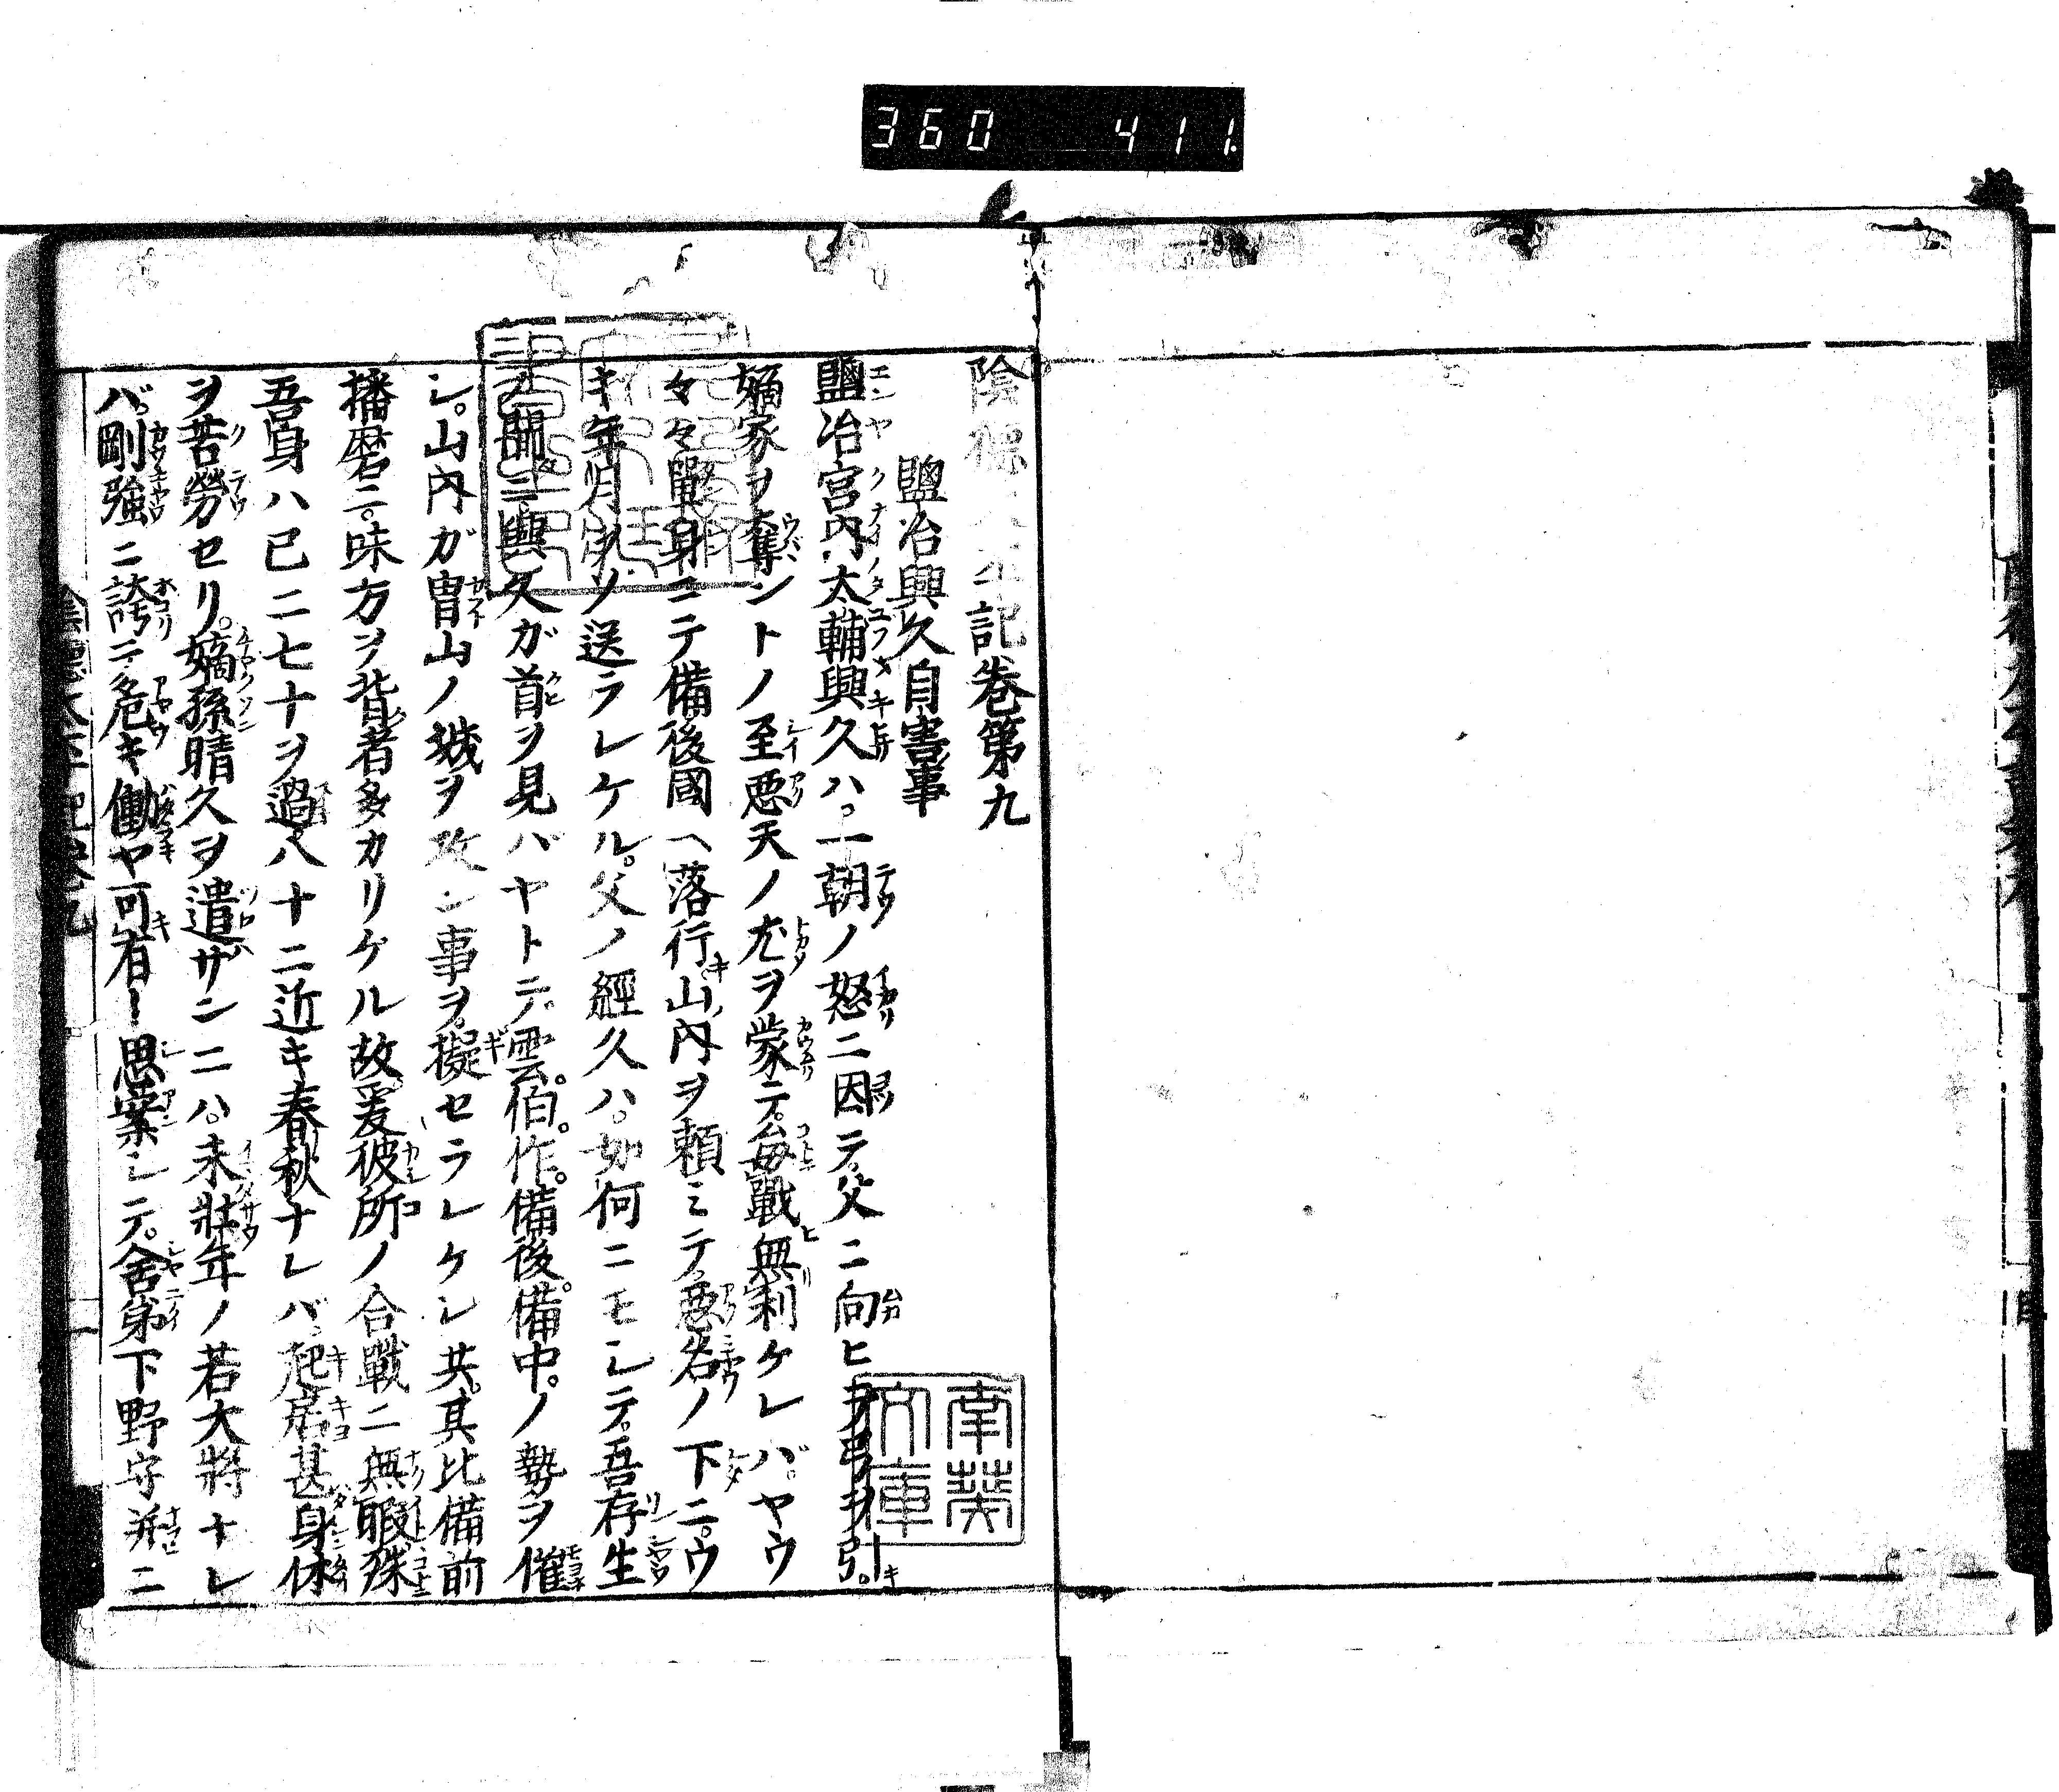 360 411
陰德太平記卷第九
鹽冶興久自害事
鹽冶宮内太輔興久ハ。一朝ノ怒ニ因テ父ニ向ヒ弓ヲ引。
嫡家ヲ奪ントノ至悪天ノ尤ヲ蒙テ。毎戰無利ケレバ。ヤウ
々々單身ニテ備後國ヘ落行。山内ヲ頼ミテ。悪名ノ下ニ。ウ
キ年月ヲゾ送ラレケル。父ノ經久ハ。如何ニモシテ。吾存生
ノ間ニ興久ガ首ヲ見バヤトテ。雲。伯。作。備後。備中。ノ勢ヲ催
シ。山内ガ冑山ノ城ヲ攻ン事ヲ。擬セラレケレ共。其比備前
播磨ニ。味方ヲ背者多カリケル故。爰彼所ノ合戰ニ無暇。殊
吾身ハ已ニ七十ヲ過八十ニ近キ春秋ナレバ。起居甚身体
ヲ苦勞セリ。嫡孫晴久ヲ遣サンニハ。未壯年ノ若大將ナレ
バ。剛強ニ誇テ。危キ働ヤ可有ト思案シテ。舍弟下野守并ニ
陰德太平記卷九
一
南葵
文庫